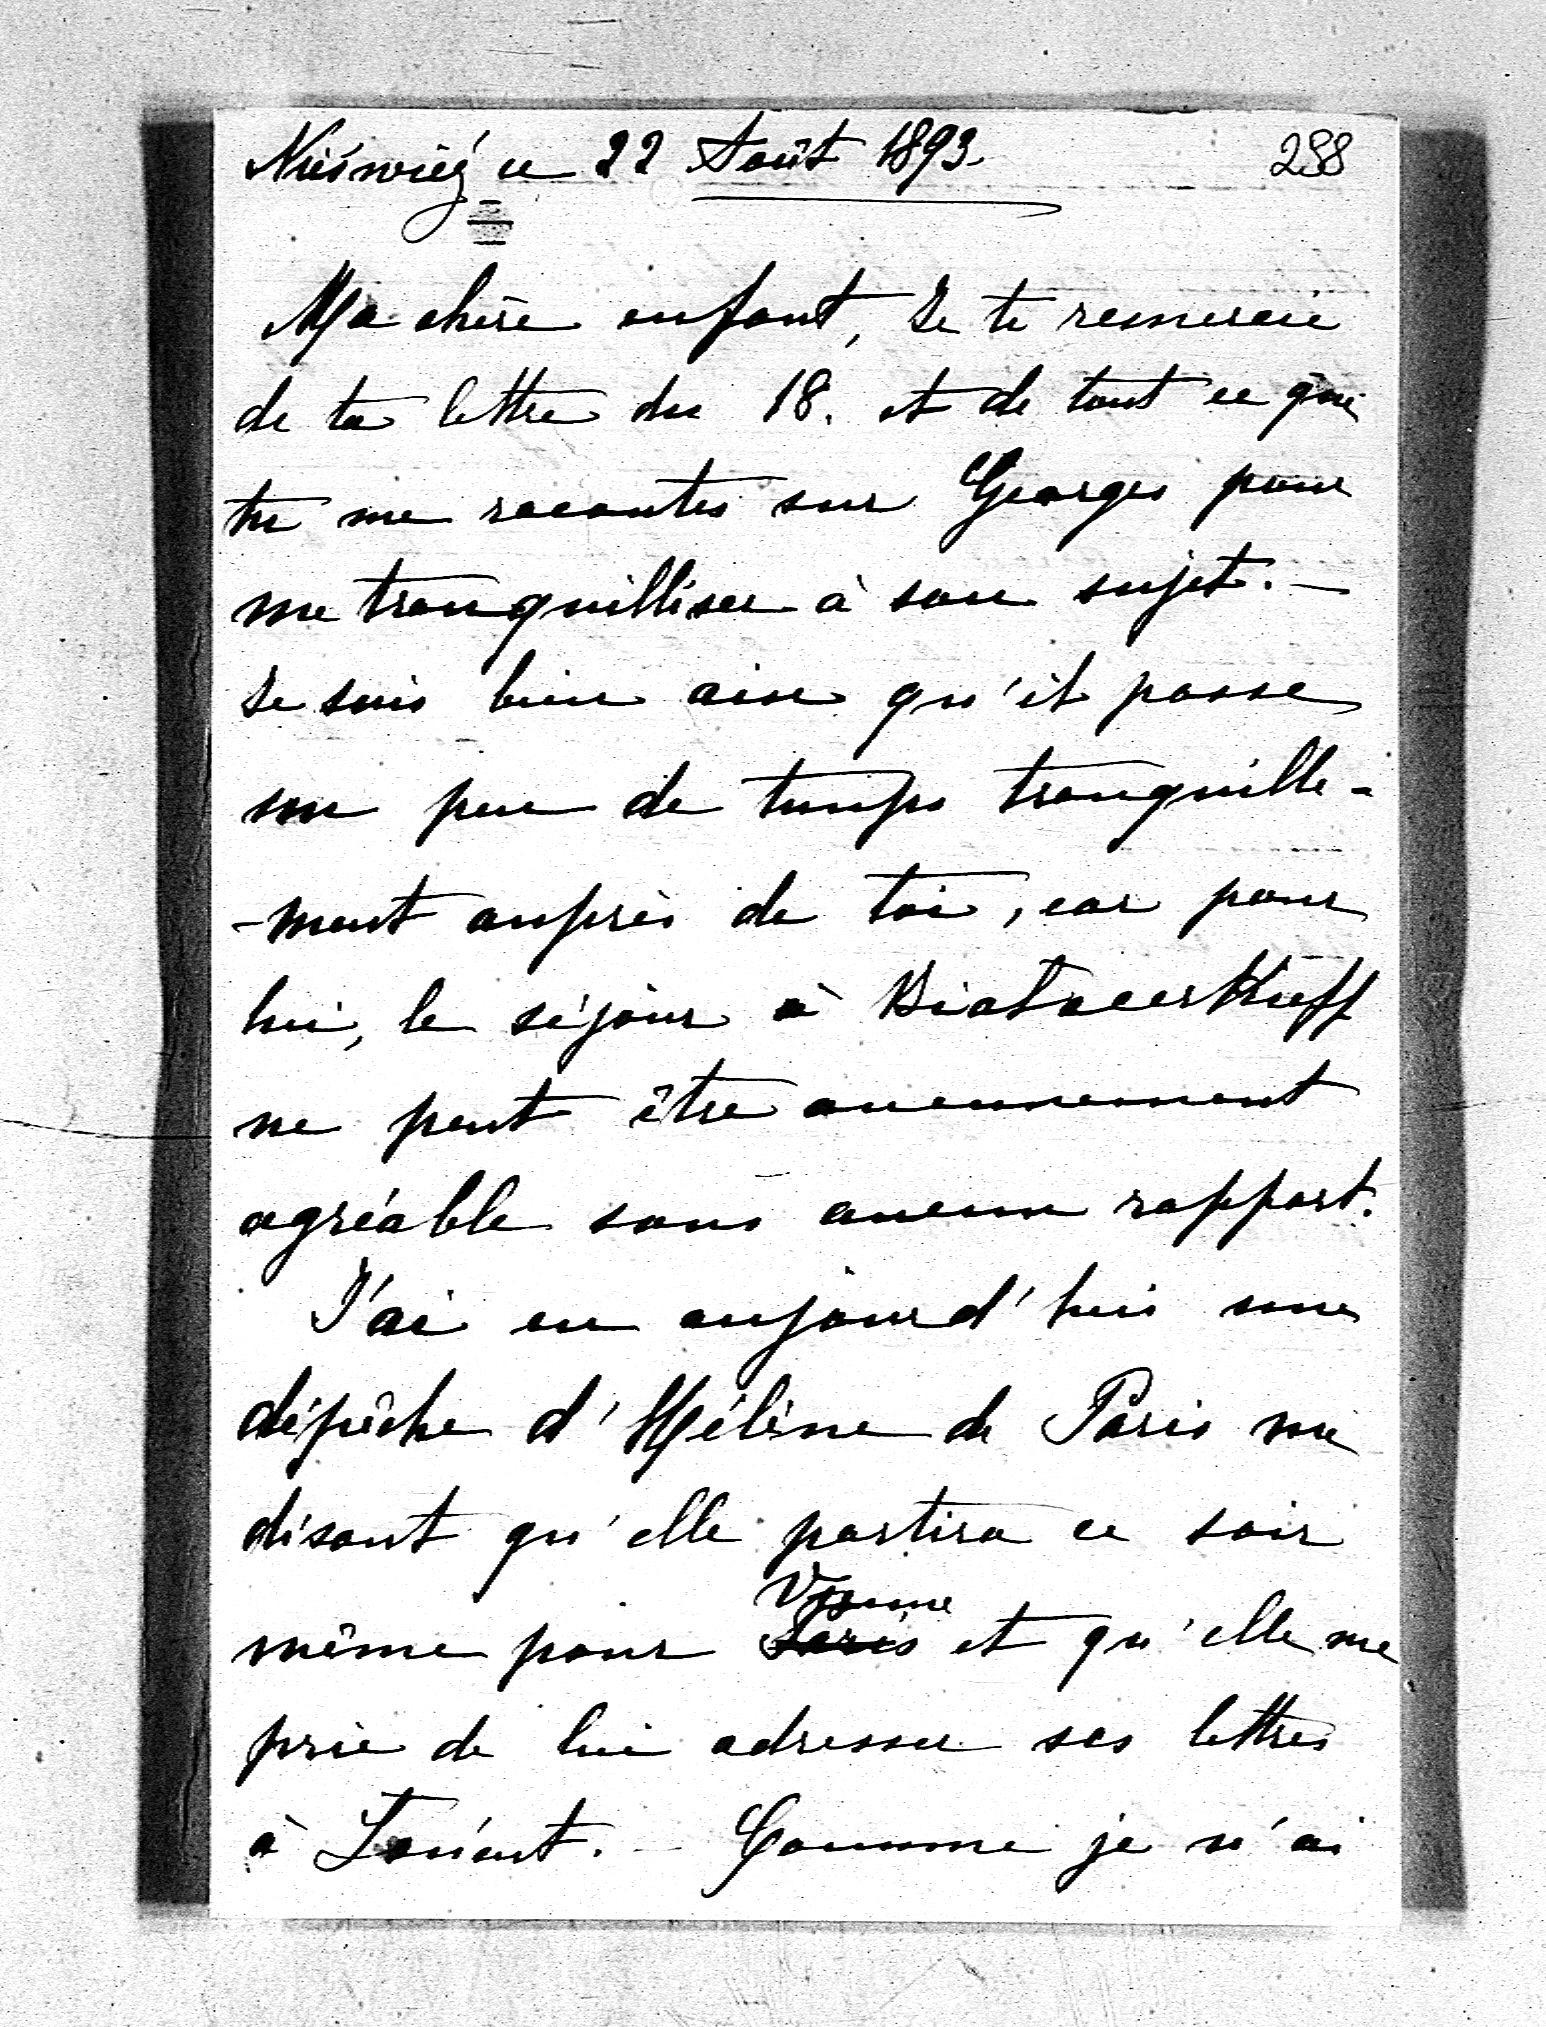 Nieśwież ce 22 Août 1893. 288
Ma chère enfant, Je te remercie
de ta lettre du 18. et de tout ce que
tu me racontes sur Georges pour
me tranquilliser à son sujet. —
Je suis bien aise qu'il passe
un peu de temps tranquille-
-ment auprès de toi, car pour
lui, le séjour à Białocerkieff
ne peut être aucunement
agréable sous aucun rapport.
J'ai eu aujourd'hui une
dépêche d'Hélène de Paris me
disant qu'elle partira ce soir
Vienne
même pour Paris et qu'elle me
prie de lui adresser ses lettres
à . — Comme je n'ai